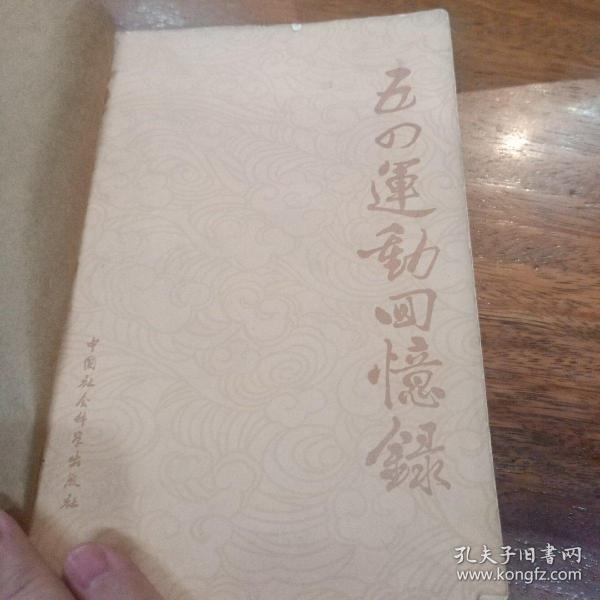 五四運動回憶録
中国社会科学出版社
孔夫子旧书网
www.kongfz.com